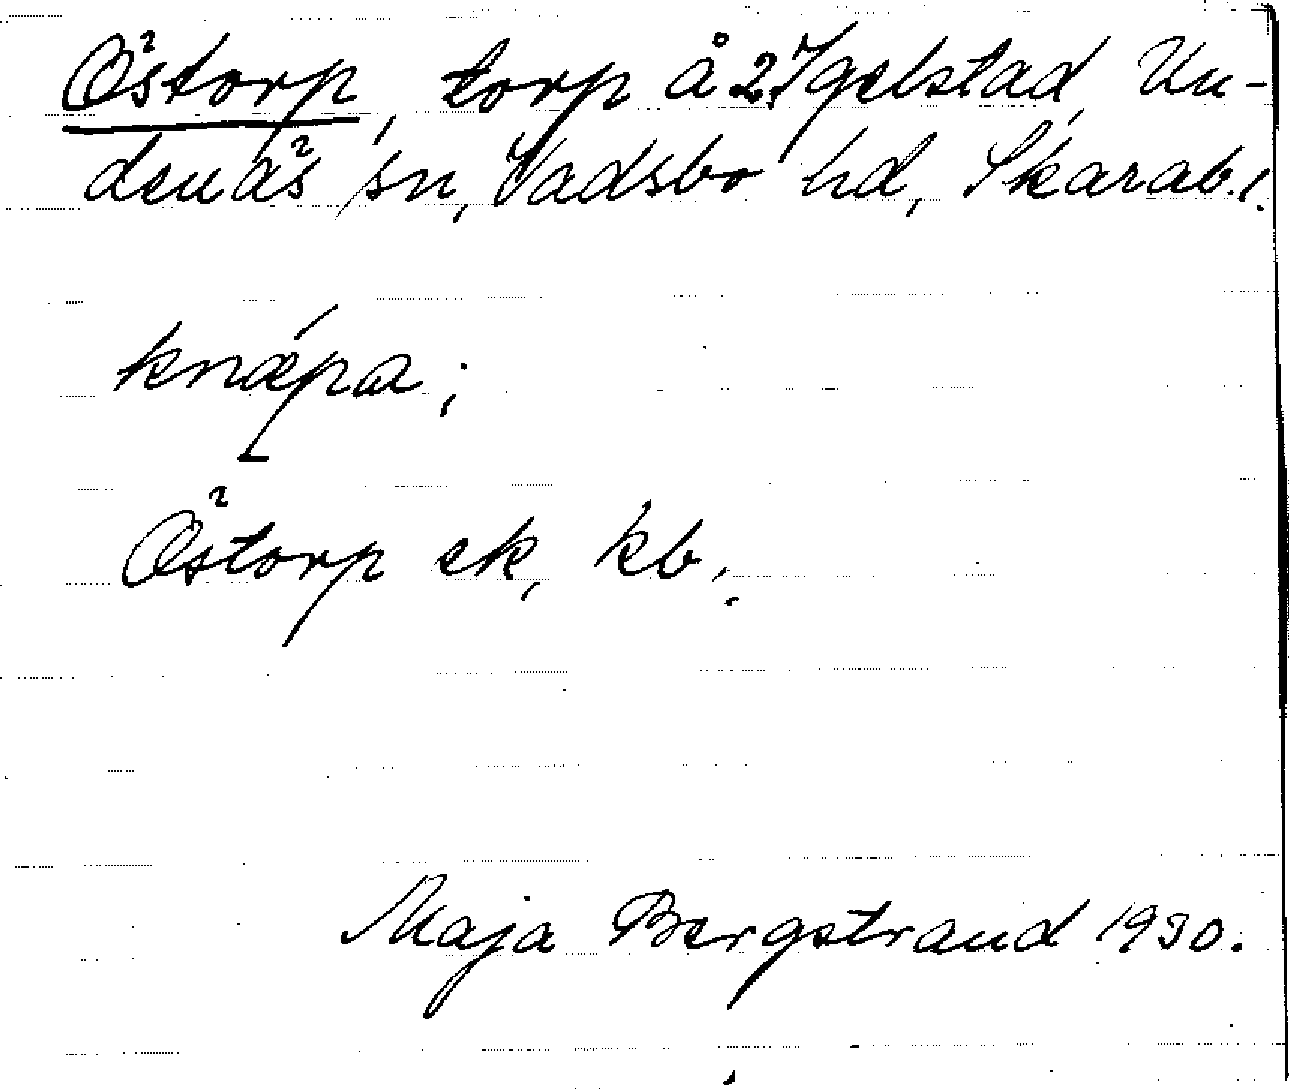 Östorp, torp å 2 Igelstad, Un-
denäs sn, Vadsbo hd, Skarab. l.
knäpa;
Östorp ek, kb.;
Maja Bergstrand 1930.